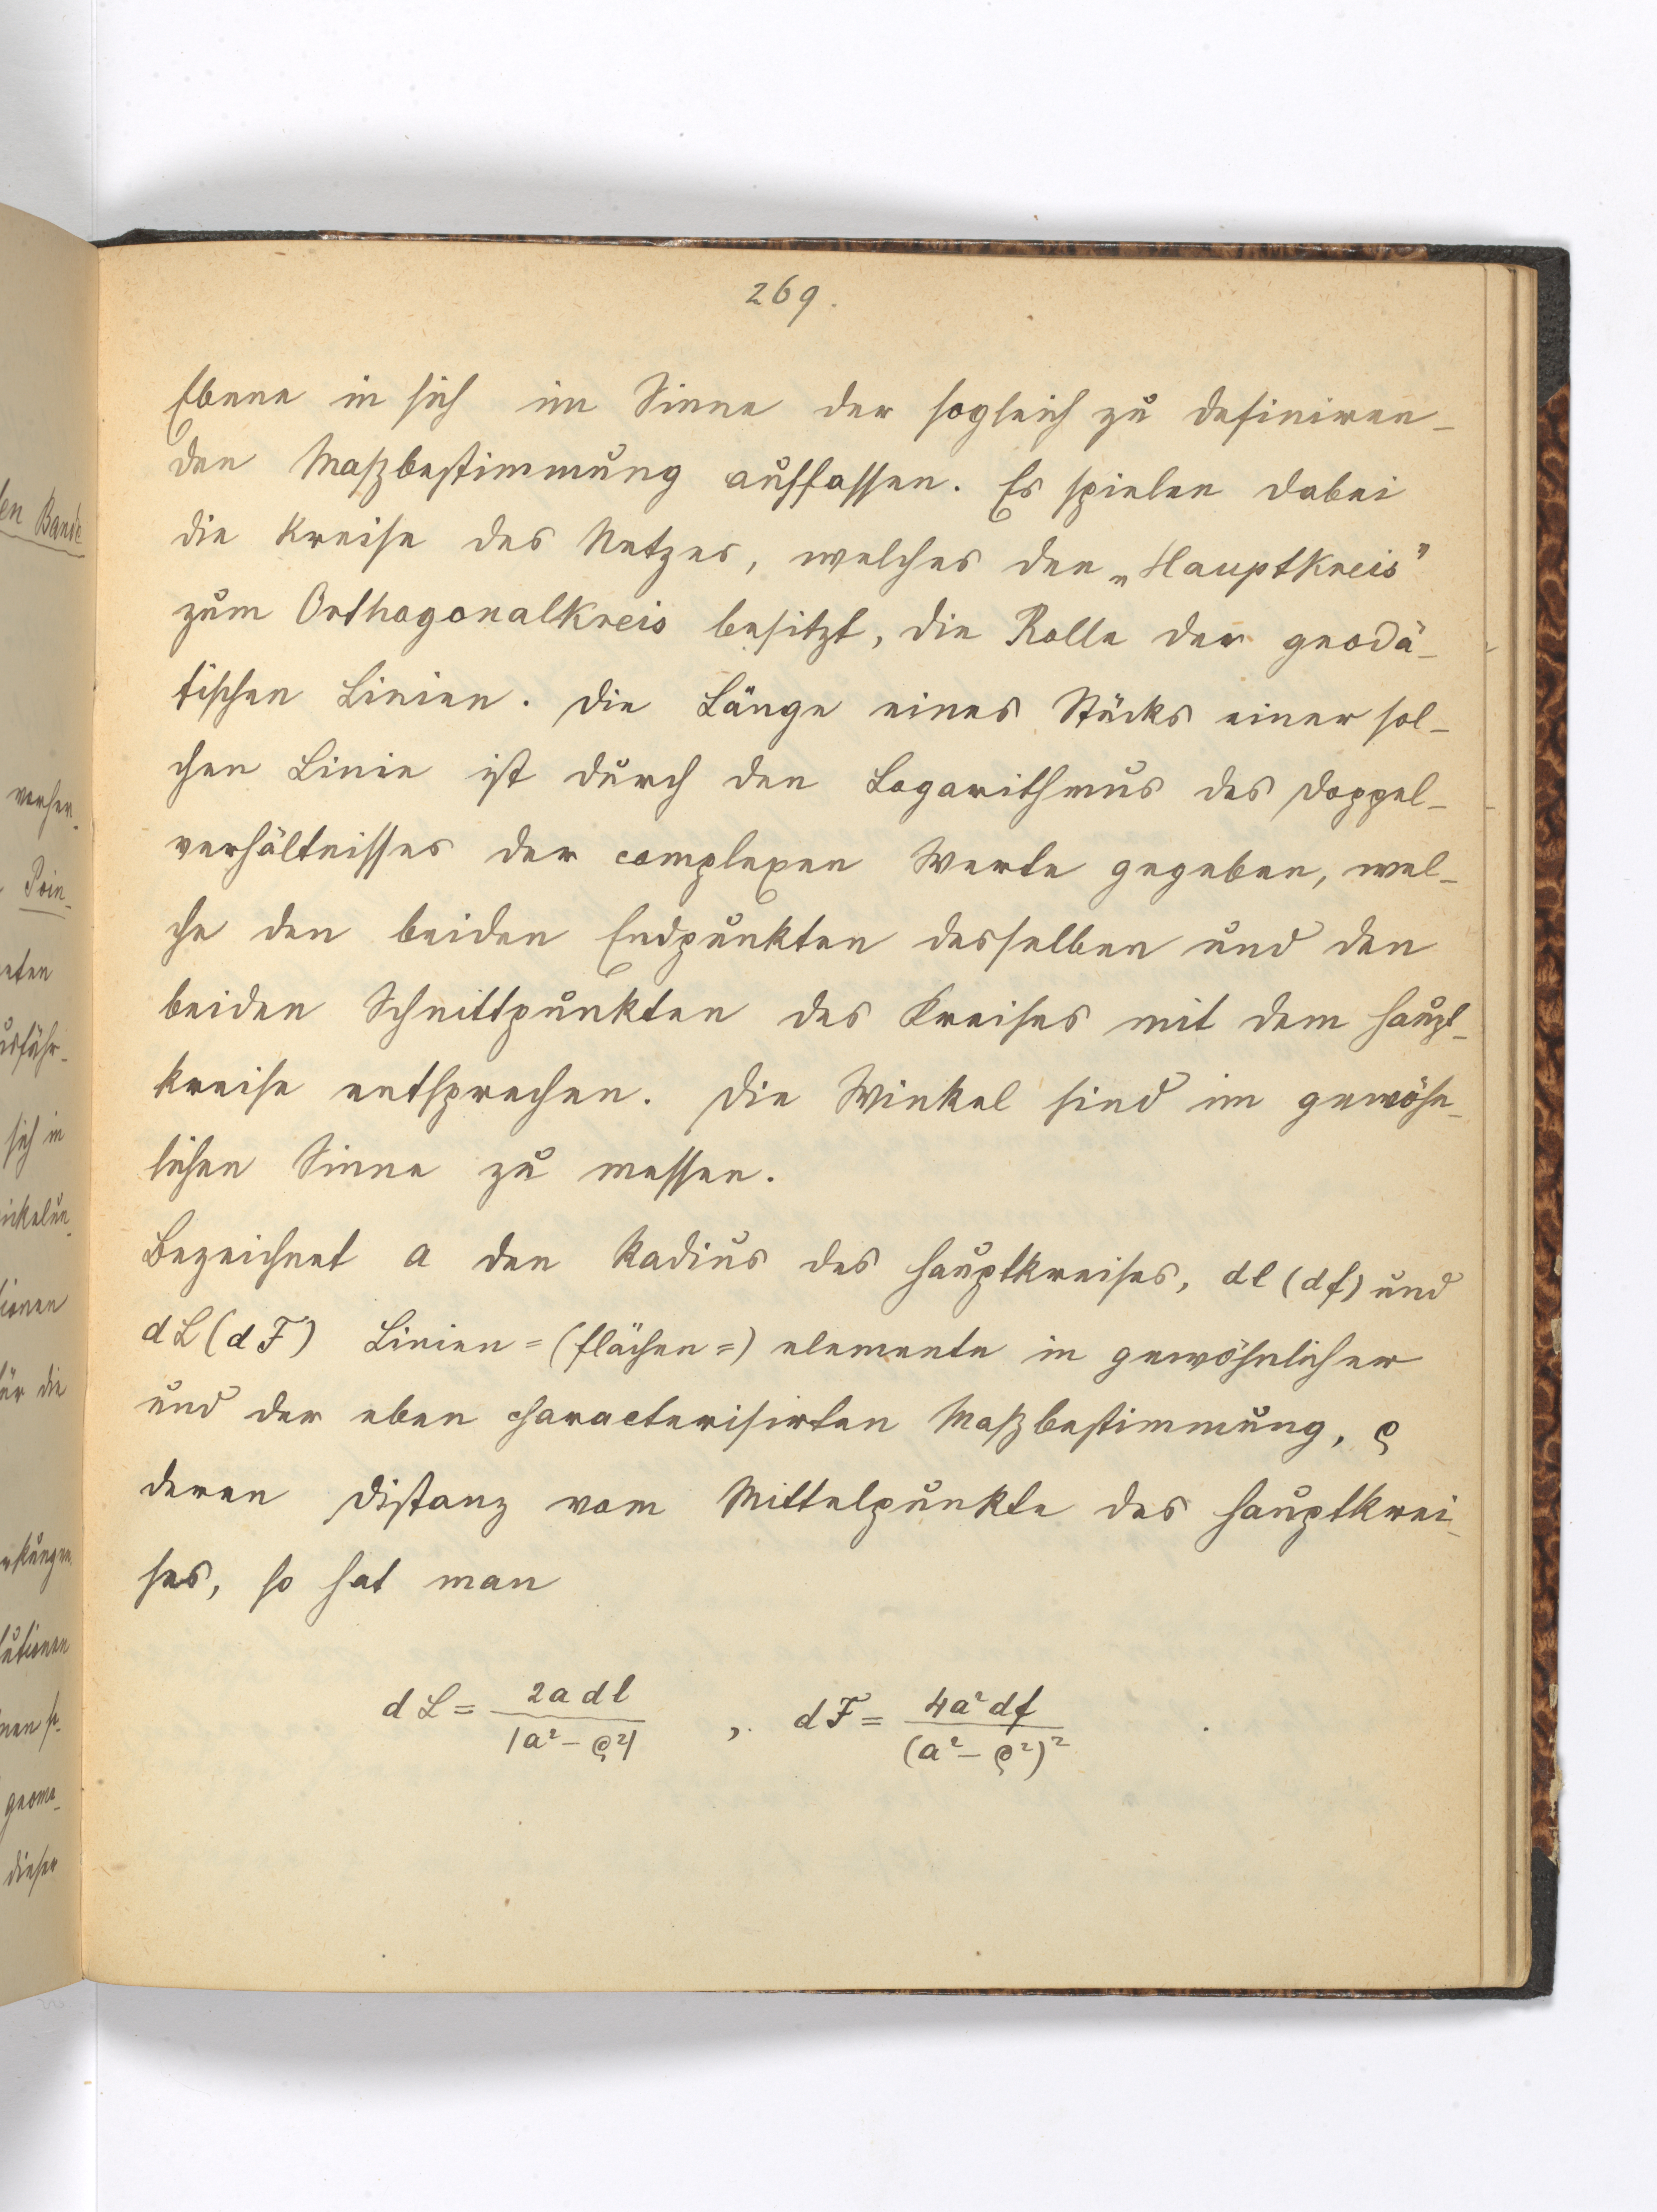 269.
Ebene in sich im Sinne der sogleich zu definiren-
den Maßbestimmung auffassen. Es spielen dabei
die Kreise des Netzes, welches den „Hauptkreis"
zum Orthogonalkreis besitzt, die Rolle der geodä-
tischen Linien. Die Länge eines Stücks einer sol-
chen Linie ist durch den Logarithmus des Doppel-
verhältnisses der complexen Werte gegeben, wel-
che den beiden Endpunkten desselben und den
beiden Schnittpunkten des Kreises mit dem Haupt-
kreise entsprechen. Die Winkel sind im gewöhn-
lichen Sinne zu messen.
Bezeichnet a den Radius des Hauptkreises, dl (df) und
dL (dF) Linien=(flächen=) elemente in gewöhnlicher
und der eben characterisirten Maßbestimmung, ϱ
deren Distanz vom Mittelpunkte des Hauptkrei-
ses, so hat man
dL = 2a dl / |a² - ϱ²| , dF = 4a² df / (a² - ϱ²)² .
en Bande
Poin-
sich in
für die
dieser